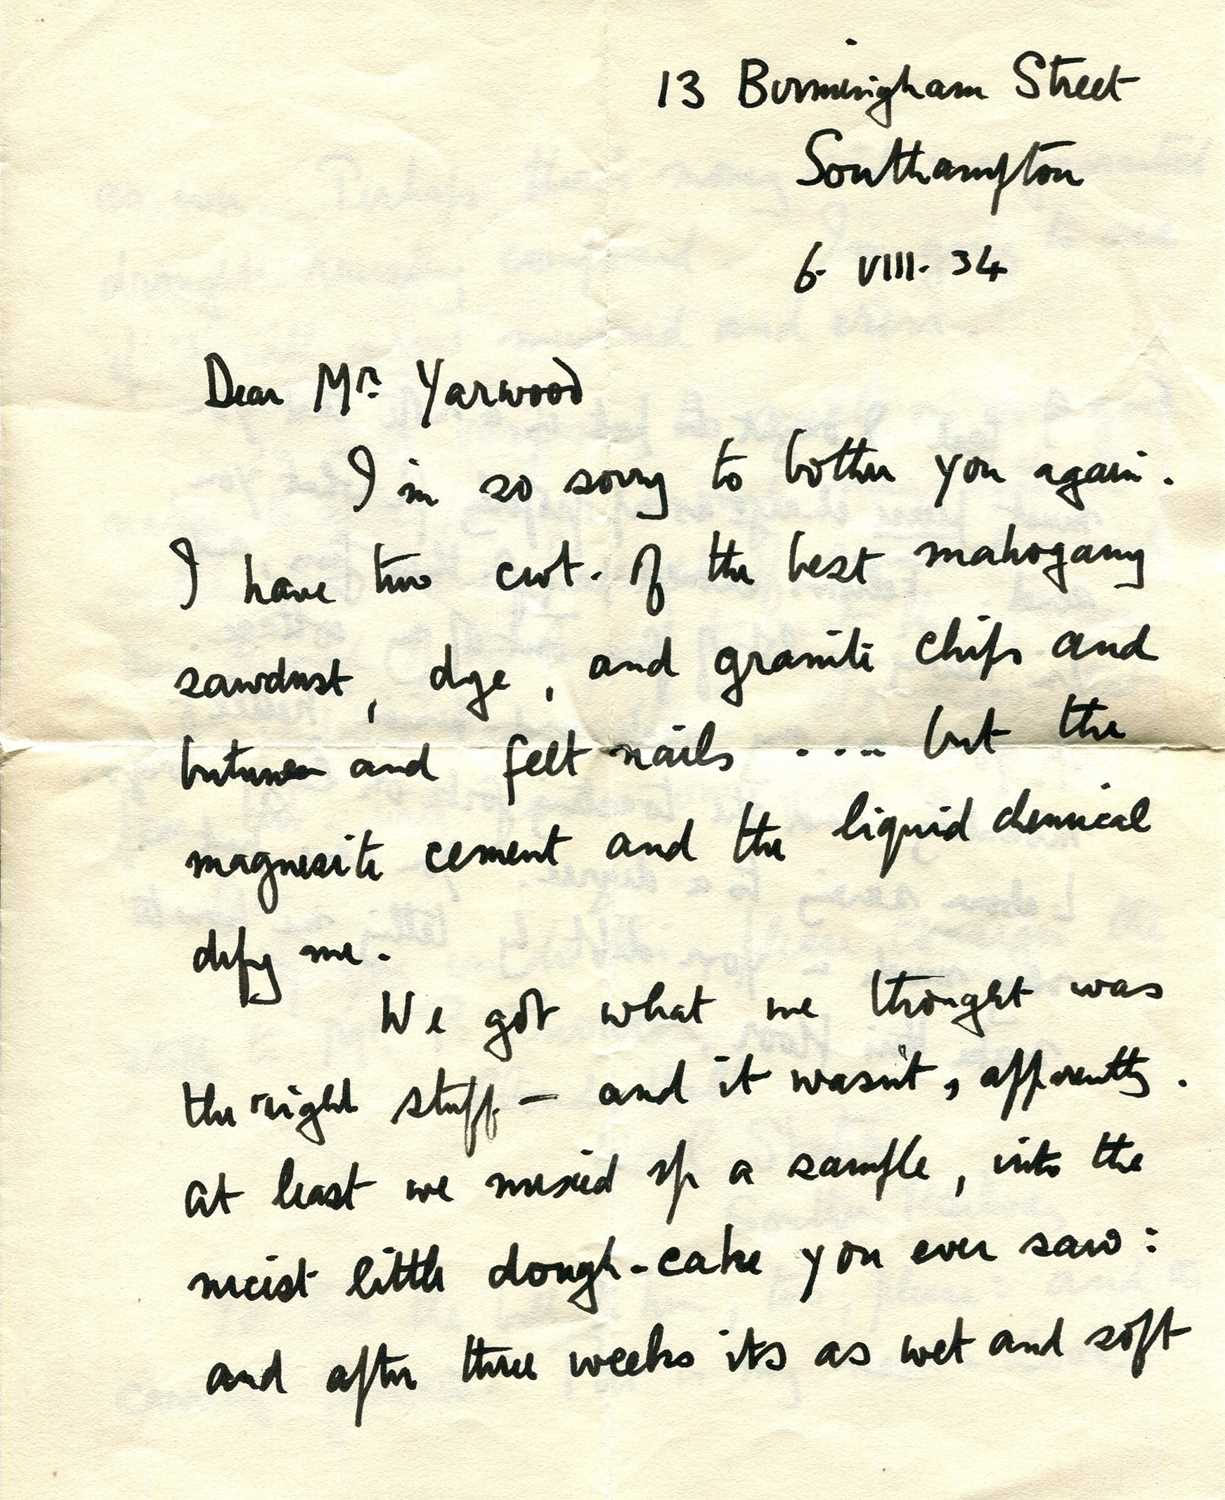 13 Birmingham Street
Southampton
6. VIII. 34
Dear Mr. Yarwood
I'm so sorry to bother you again.
I have two cwt. of the best mahogany
sawdust, dye, and granite chips and
bitumen and felt nails .... but the
magnesite cement and the liquid chemical
defy me.
We got what we thought was
the right stuff — and it wasn't, apparently.
At least we mixed up a sample, into the
nicest little dough-cake you ever saw:
and after three weeks its as wet and soft